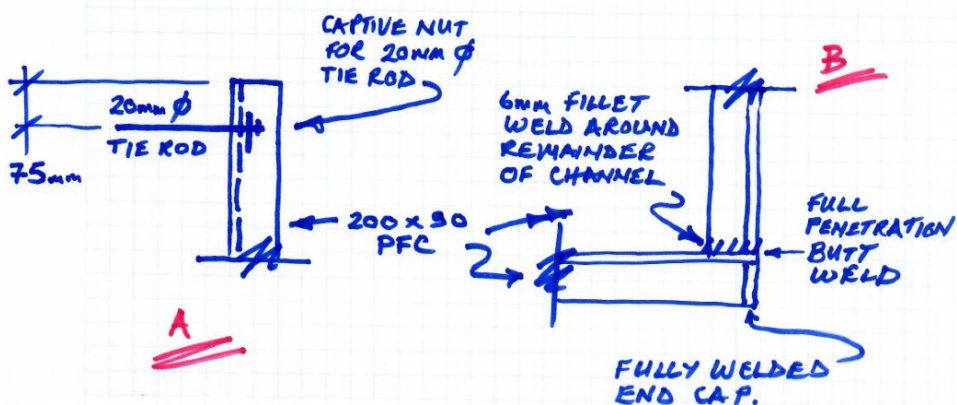 CAPTIVE NUT
FOR 20mm Ø
TIE ROD
20mm Ø
TIE ROD
75mm
200 x 90
PFC
A
B
6mm FILLET
WELD AROUND
REMAINDER
OF CHANNEL
FULL
PENETRATION
BUTT
WELD
FULLY WELDED
END CAP.